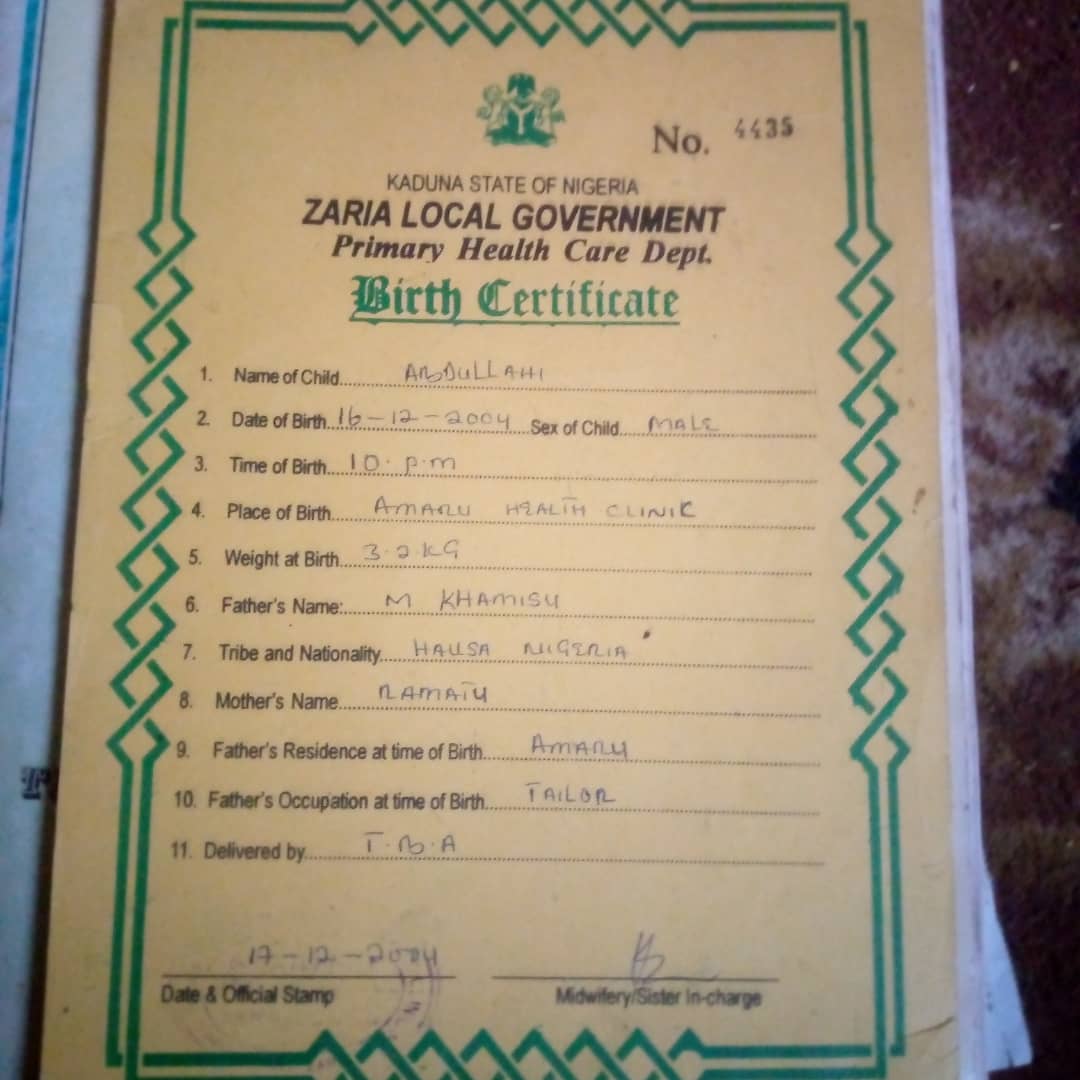 No. 4435
KADUNA STATE OF NIGERIA
ZARIA LOCAL GOVERNMENT
Primary Health Care Dept.
Birth Certificate
1. Name of Child ABDULLAHI
2. Date of Birth 16-12-2004 Sex of Child MALE
3. Time of Birth 10.p.m
4. Place of Birth AMARU HEALTH CLINIC
5. Weight at Birth 3.2KG
6. Father's Name: M KHAMISU
7. Tribe and Nationality HAUSA NIGERIA
8. Mother's Name RAMATU
9. Father's Residence at time of Birth AMARU
10. Father's Occupation at time of Birth TAILOR
11. Delivered by T.B.A
17-12-2004
Date & Official Stamp Midwifery/Sister In-charge